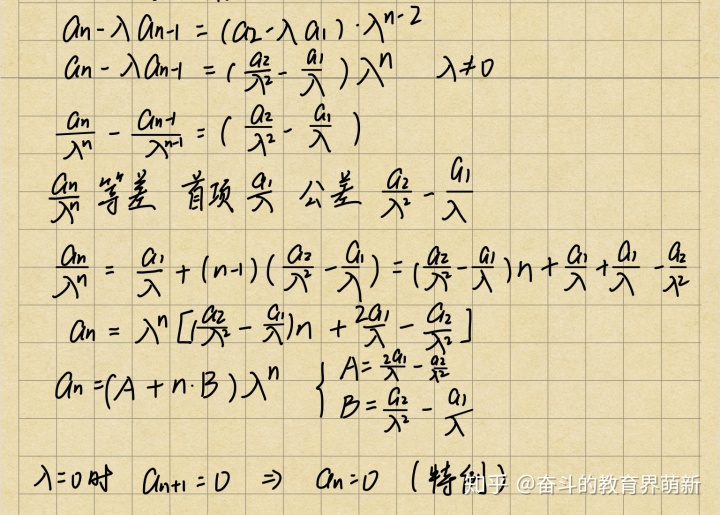 an - λan-1 = (a2 - λa1)·λ^(n-2)
an - λan-1 = (a2/λ² - a1/λ)λ^n   λ≠0
an/λ^n - an-1/λ^(n-1) = (a2/λ² - a1/λ)
an/λ^n "等差 首项 a1/λ 公差 a2/λ² - a1/λ
an/λ^n = a1/λ + (n-1)(a2/λ² - a1/λ) = (a2/λ² - a1/λ)n + a1/λ + a1/λ - a2/λ²
an = λ^n[(a2/λ² - a1/λ)n + 2a1/λ - a2/λ²]
an = (A + n·B)λ^n { A = 2a1/λ - a2/λ²
B = a2/λ² - a1/λ
λ=0时 an+1 = 0 ⇒ an = 0 (特例)
知乎 @奋斗的教育界萌新